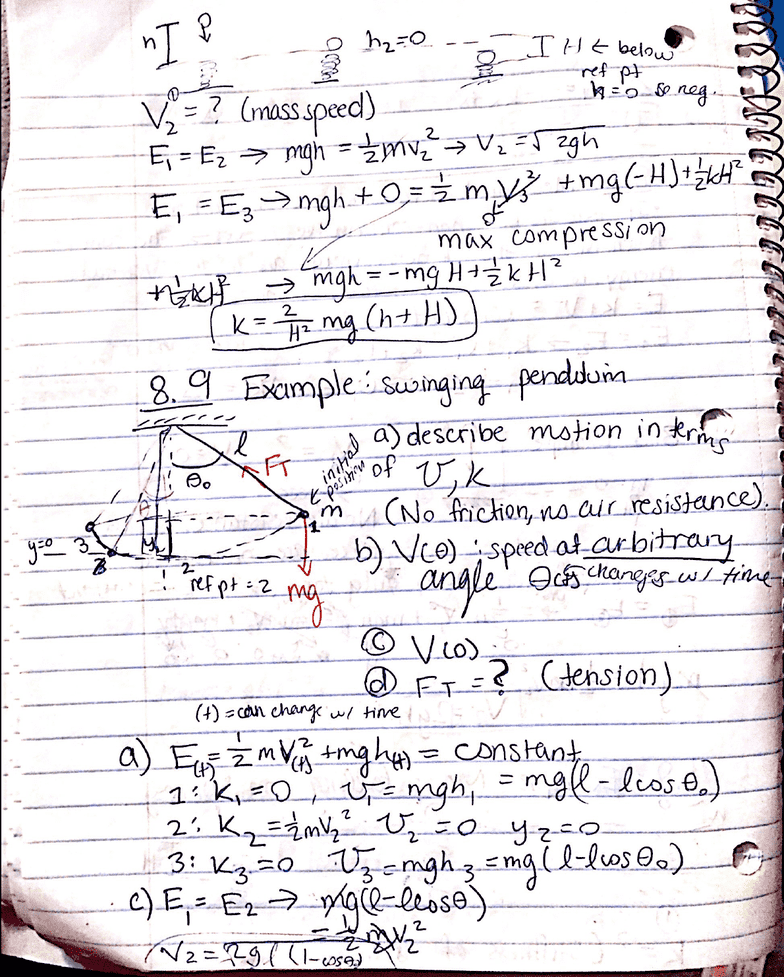 h h₂=0 H ← below
ref pt
h=0 so neg.
V₂ = ? (mass speed)
E₁ = E₂ → mgh = ½mv₂² → V₂ = √2gh
E₁ = E₃ → mgh + 0 = ½ m V₃² + mg(-H) + ½kH²
max compression
+½kH² → mgh = -mgH + ½kH²
k = 2/H² mg (h + H)
8.9 Example: swinging pendulum
a) describe motion in terms
of U, K
(No friction, no air resistance).
b) V(θ) : speed at arbitrary
angle θ(t) changes w/ time
l θ₀ F_T initial position m 1
θ y
y=0 3 2
ref pt = 2 mg
c) V(0)
d) F_T = ? (tension)
(t) = can change w/ time
a) E(t) = ½ mV(t)² + mgh(t) = constant
1: K₁ = 0, U₁ = mgh₁ = mg(l - lcosθ₀)
2: K₂ = ½mv₂² U₂ = 0 y₂ = 0
3: K₃ = 0 U₃ = mgh₃ = mg(l - lcosθ₀)
c) E₁ = E₂ → mg(l - lcosθ)
= ½ mV₂²
V₂ = 2gl(1-cosθ)